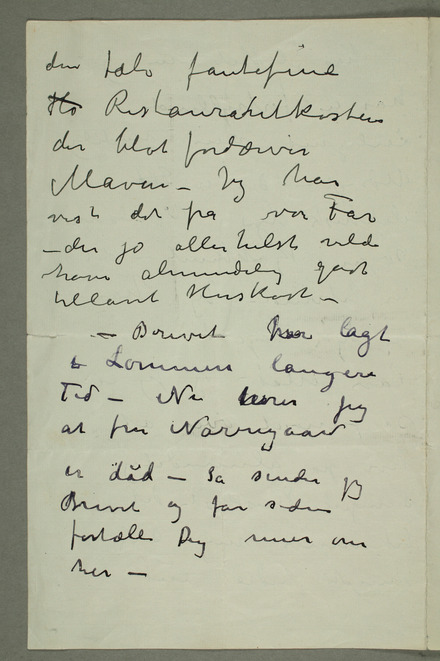 den tale fantefine
Ho Restauratiltkosten
der blot fordærver
Maven – Jeg har
vist det fra vor Far
– der jo allerhelst vilde
have almindelig godt
tillavet Huskost –
– Brevet har lagt
i Lommen længere
Tid – Nu hører jeg
at fru Nørregaard
er død – Så sender jeg
Brevet og får siden
fortælle Dig mere om
her –